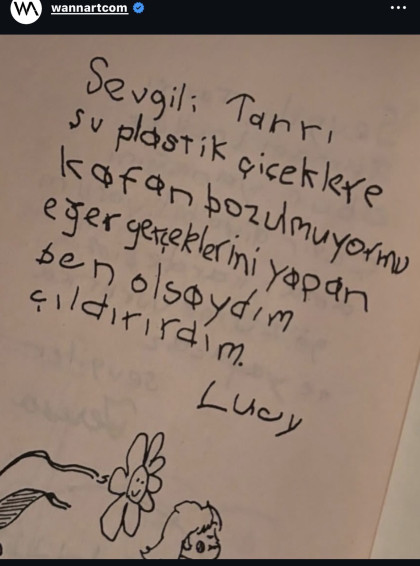 wannartcom
Sevgili Tanrı
şu plastik çiçeklere
kafan bozulmuyormu
eğer gerçeklerini yapan
ben olsaydım
çıldırırdım.
Lucy